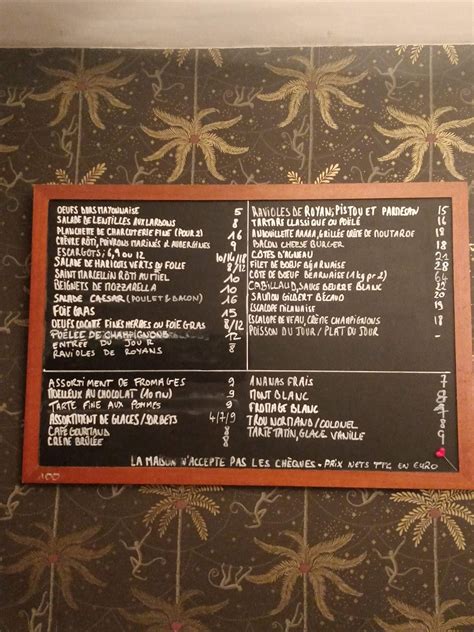 OEUFS DURS MAYONNAISE 5
SALADE DE LENTILLES AUX LARDONS 8
PLANCHETTE DE CHARCUTERIE FINE (POUR 2) 16
CHÈVRE RÔTI, POIVRONS MARINÉS & AUBERGINES 9
ESCARGOTS: 6, 9 OU 12 10/14/18
SALADE DE HARICOTS VERTS OU FOLLE 8/12
SAINT MARCELLIN RÔTI AU MIEL 10
BEIGNETS DE MOZZARELLA 10
SALADE CAESAR (POULET & BACON) 16
FOIE GRAS 15
OEUFS COCOTTE FINES HERBES OU FOIE GRAS 8/12
POÊLÉE DE CHAMPIGNONS 12
ENTRÉE DU JOUR
RAVIOLES DE ROYANS 8
RAVIOLES DE ROYANS, PISTOU ET PARMESAN 15
TARTARE CLASSIQUE OU POÊLÉ 16
ANDOUILLETTE AAAAA, GRILLÉE CRÈME DE MOUTARDE 18
BACON CHEESE BURGER 16
CÔTES D'AGNEAU 21
FILET DE BOEUF BÉARNAISE 28
CÔTE DE BOEUF BÉARNAISE (1 kg pr 2) 64
CABILLAUD, SAUCE BEURRE BLANC 22
SAUMON GILBERT BÉCAUD 20
ESCALOPE MILANAISE 18
ESCALOPE DE VEAU, CRÈME CHAMPIGNONS 19
POISSON DU JOUR / PLAT DU JOUR
ASSORTIMENT DE FROMAGES 9
MOELLEUX AU CHOCOLAT (10 MN) 9
TARTE FINE AUX POMMES 9
ASSORTIMENT DE GLACES / SORBETS 4/7/9
CAFÉ GOURMAND 8
CRÈME BRÛLÉE 8
ANANAS FRAIS 7
MONT BLANC 8
FROMAGE BLANC
TROU NORMAND / COLONEL 8
TARTE TATIN, GLACE VANILLE 9
LA MAISON N'ACCEPTE PAS LES CHÈQUES - PRIX NETS TTC EN EURO